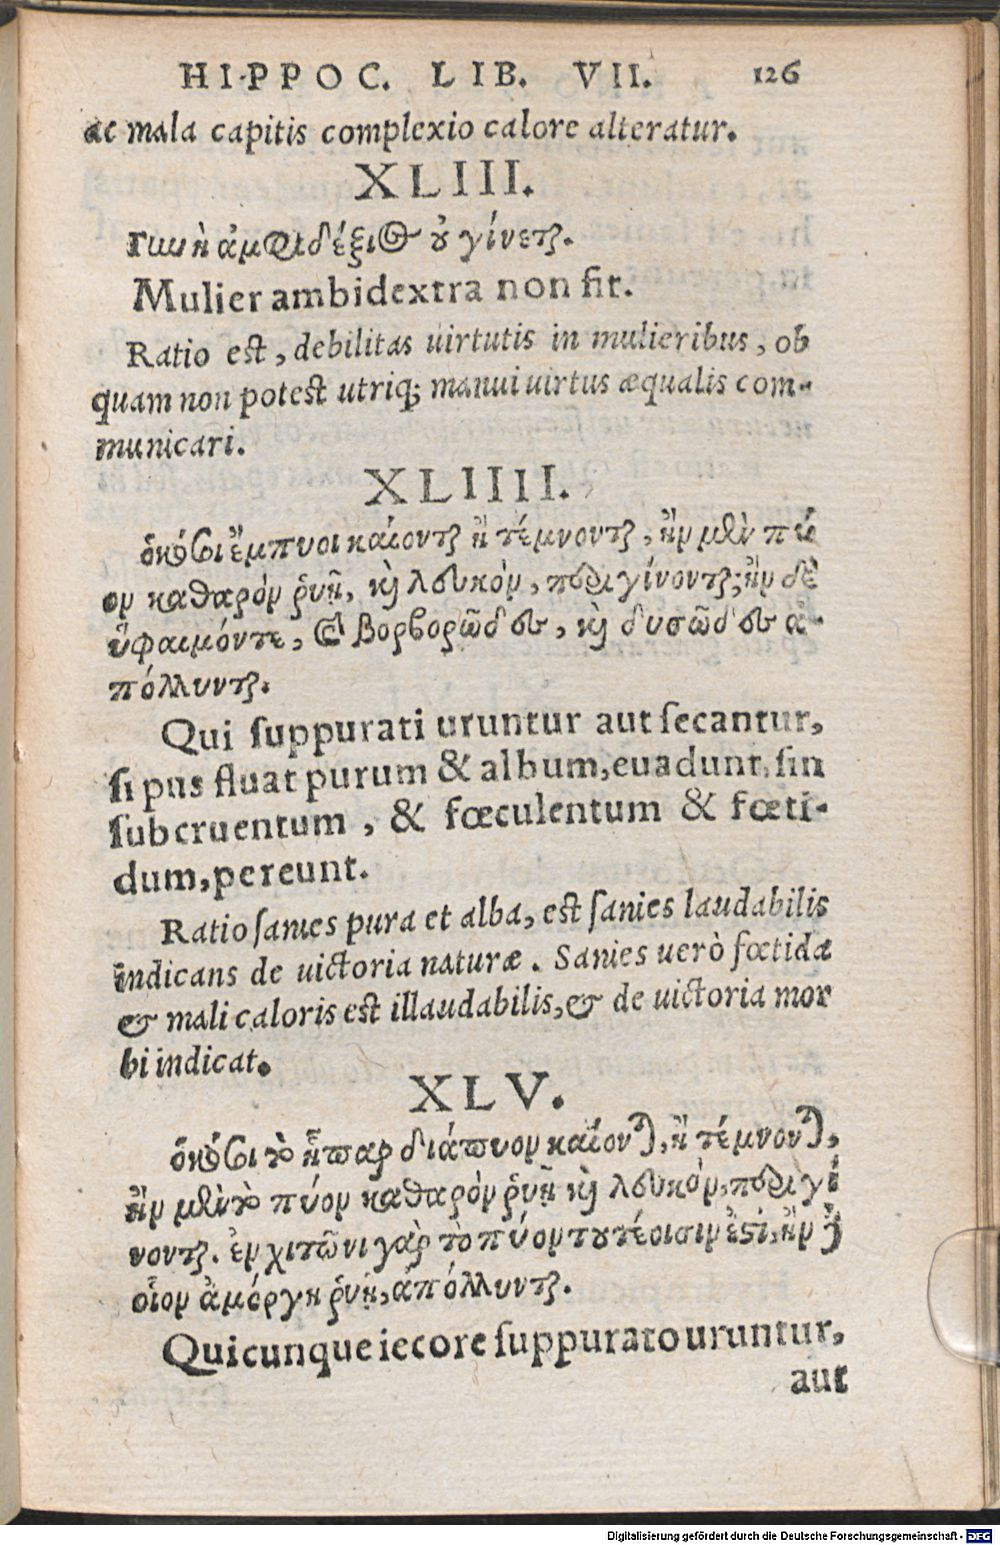 HIPPOC. LIB. VII. 126
ac mala capitis complexio calore alteratur.
XLIII.
Γυνὴ ἀμφιδέξιος οὐ γίνεται.
Mulier ambidextra non fit.
Ratio est, debilitas uirtutis in mulieribus, ob
quam non potest utriq; manui uirtus æqualis com-
municari.
XLIIII.
ὁκόσοι ἔμπυοι καίονται ἢ τέμνονται, ἢν μὲν πύ
ον καθαρὸν ῥυῇ, καὶ λευκὸν, περιγίνονται; ἢν δὲ
ὕφαιμόν τε, καὶ βορβορῶδες, καὶ δυσῶδες ἀ-
πόλλυνται.
Qui suppurati uruntur aut secantur,
si pus fluat purum & album, euadunt, sin
subcruentum, & fœculentum & fœti-
dum, pereunt.
Ratio sanies pura et alba, est sanies laudabilis
indicans de uictoria naturæ. Sanies uerò fœtida
& mali caloris est illaudabilis, & de uictoria mor
bi indicat.
XLV.
ὁκόσοι τὸ ἧπαρ διάπυον καίονται, ἢ τέμνονται,
ἢν μὲν τὸ πύον καθαρὸν ῥυῇ καὶ λευκὸν, περιγί
νονται. ἐν χιτῶνι γὰρ τὸ πύον τουτέοισιν ἐστί, ἢν δὲ
οἷον ἀμόργη ῥυῇ, ἀπόλλυνται.
Quicunque iecore suppurato uruntur,
aut
Digitalisierung gefördert durch die Deutsche Forschungsgemeinschaft - DFG